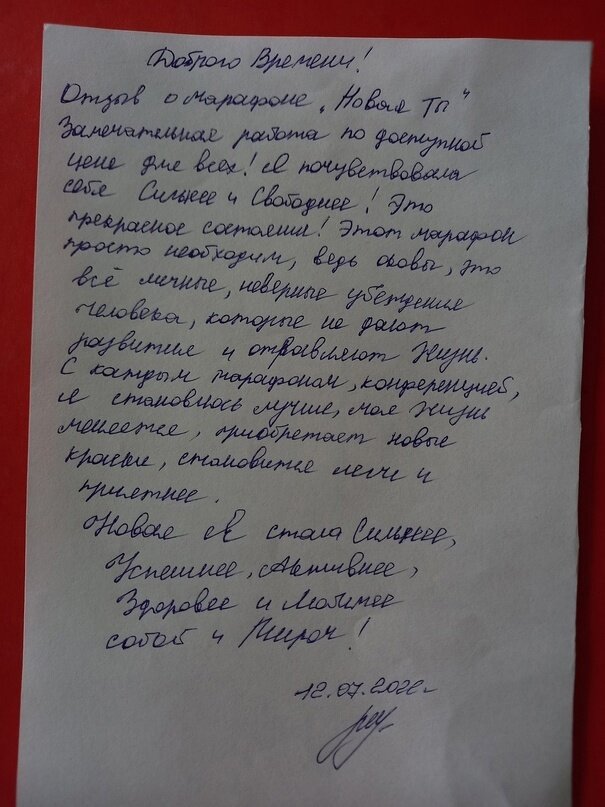 Доброго Времени!
Отзыв о марафоне „Новая Ты"
Замечательная работа по доступной
цене для всех! Я почувствовала
себя Сильнее и Свободнее! Это
прекрасное состояние! Этот марафон
просто необходим, ведь оковы, это
всё личные, неверные убеждения
человека, которые не дают
развития и отравляют Жизнь.
С каждым марафоном, конференцией,
я становлюсь лучше, моя Жизнь
меняется, приобретает новые
краски, становится легче и
приятнее.
Новая Я стала Сильнее,
Успешнее, Активнее,
Здоровее и Любимее
собой и Миром!
12.07.2022г